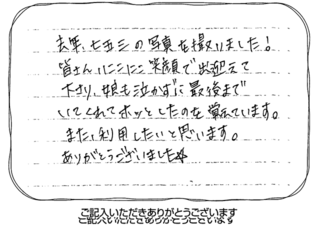 去年、七五三の写真を撮りました!
皆さんにこにこ笑顔で出迎えて
下さり、娘も泣かずに最後まで
いてくれてホッとしたのを覚えています。
また、利用したいと思います。
ありがとうございました☆
ご記入いただきありがとうございます